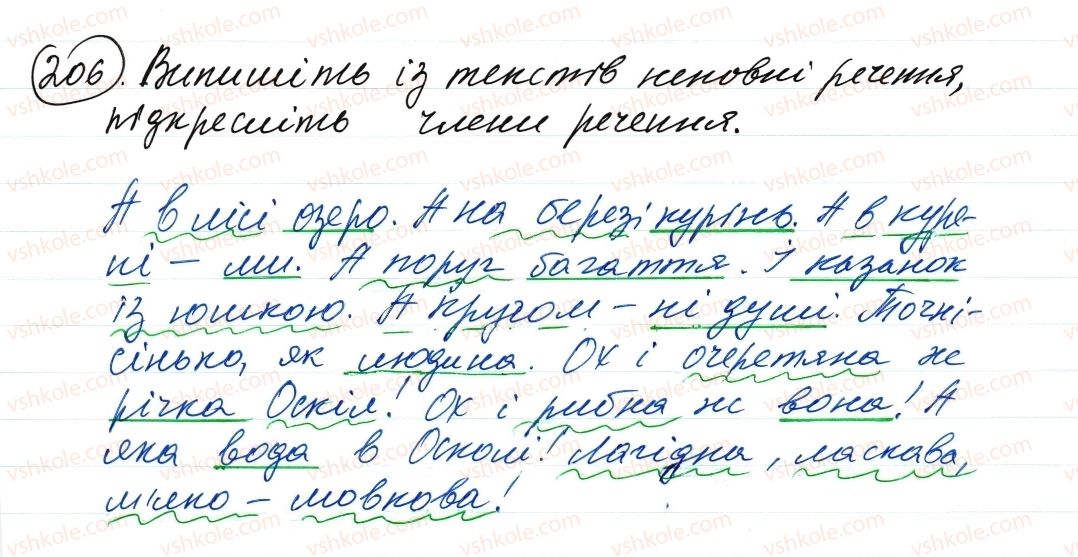 206. Випишіть із текстів неповні речення,
підкресліть члени речення.
А в лісі озеро. А на березі курінь. А в куре-
ні – ми. А поруч багаття. І казанок
із юшкою. А кругом – ні душі. Точні-
сінько, як людина. Ох і очеретяна ж
річка Оскіл! Ох і рибна ж вона! А
яка вода в Осколі! Лагідна, ласкава,
м'яко – мовкова!